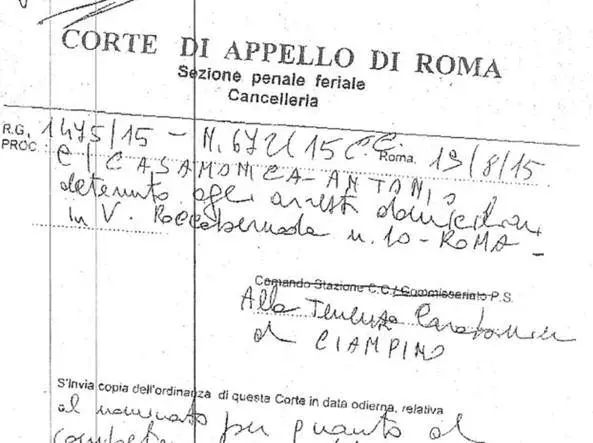 CORTE DI APPELLO DI ROMA
Sezione penale feriale
Cancelleria
R.G. 1475/15 - N. 672/15 CC. Roma, 19/8/15
PROC: c/ CASAMONICA ANTONIO
detenuto agli arresti domiciliari
in V. Roccabernarda n. 10 - ROMA -
Comando Stazione C.C./ Commissariato P.S.
Alla Tenenza Carabinieri
di CIAMPINO
S'Invia copia dell'ordinanza di questa Corte in data odierna, relativa
al nominato per quanto di